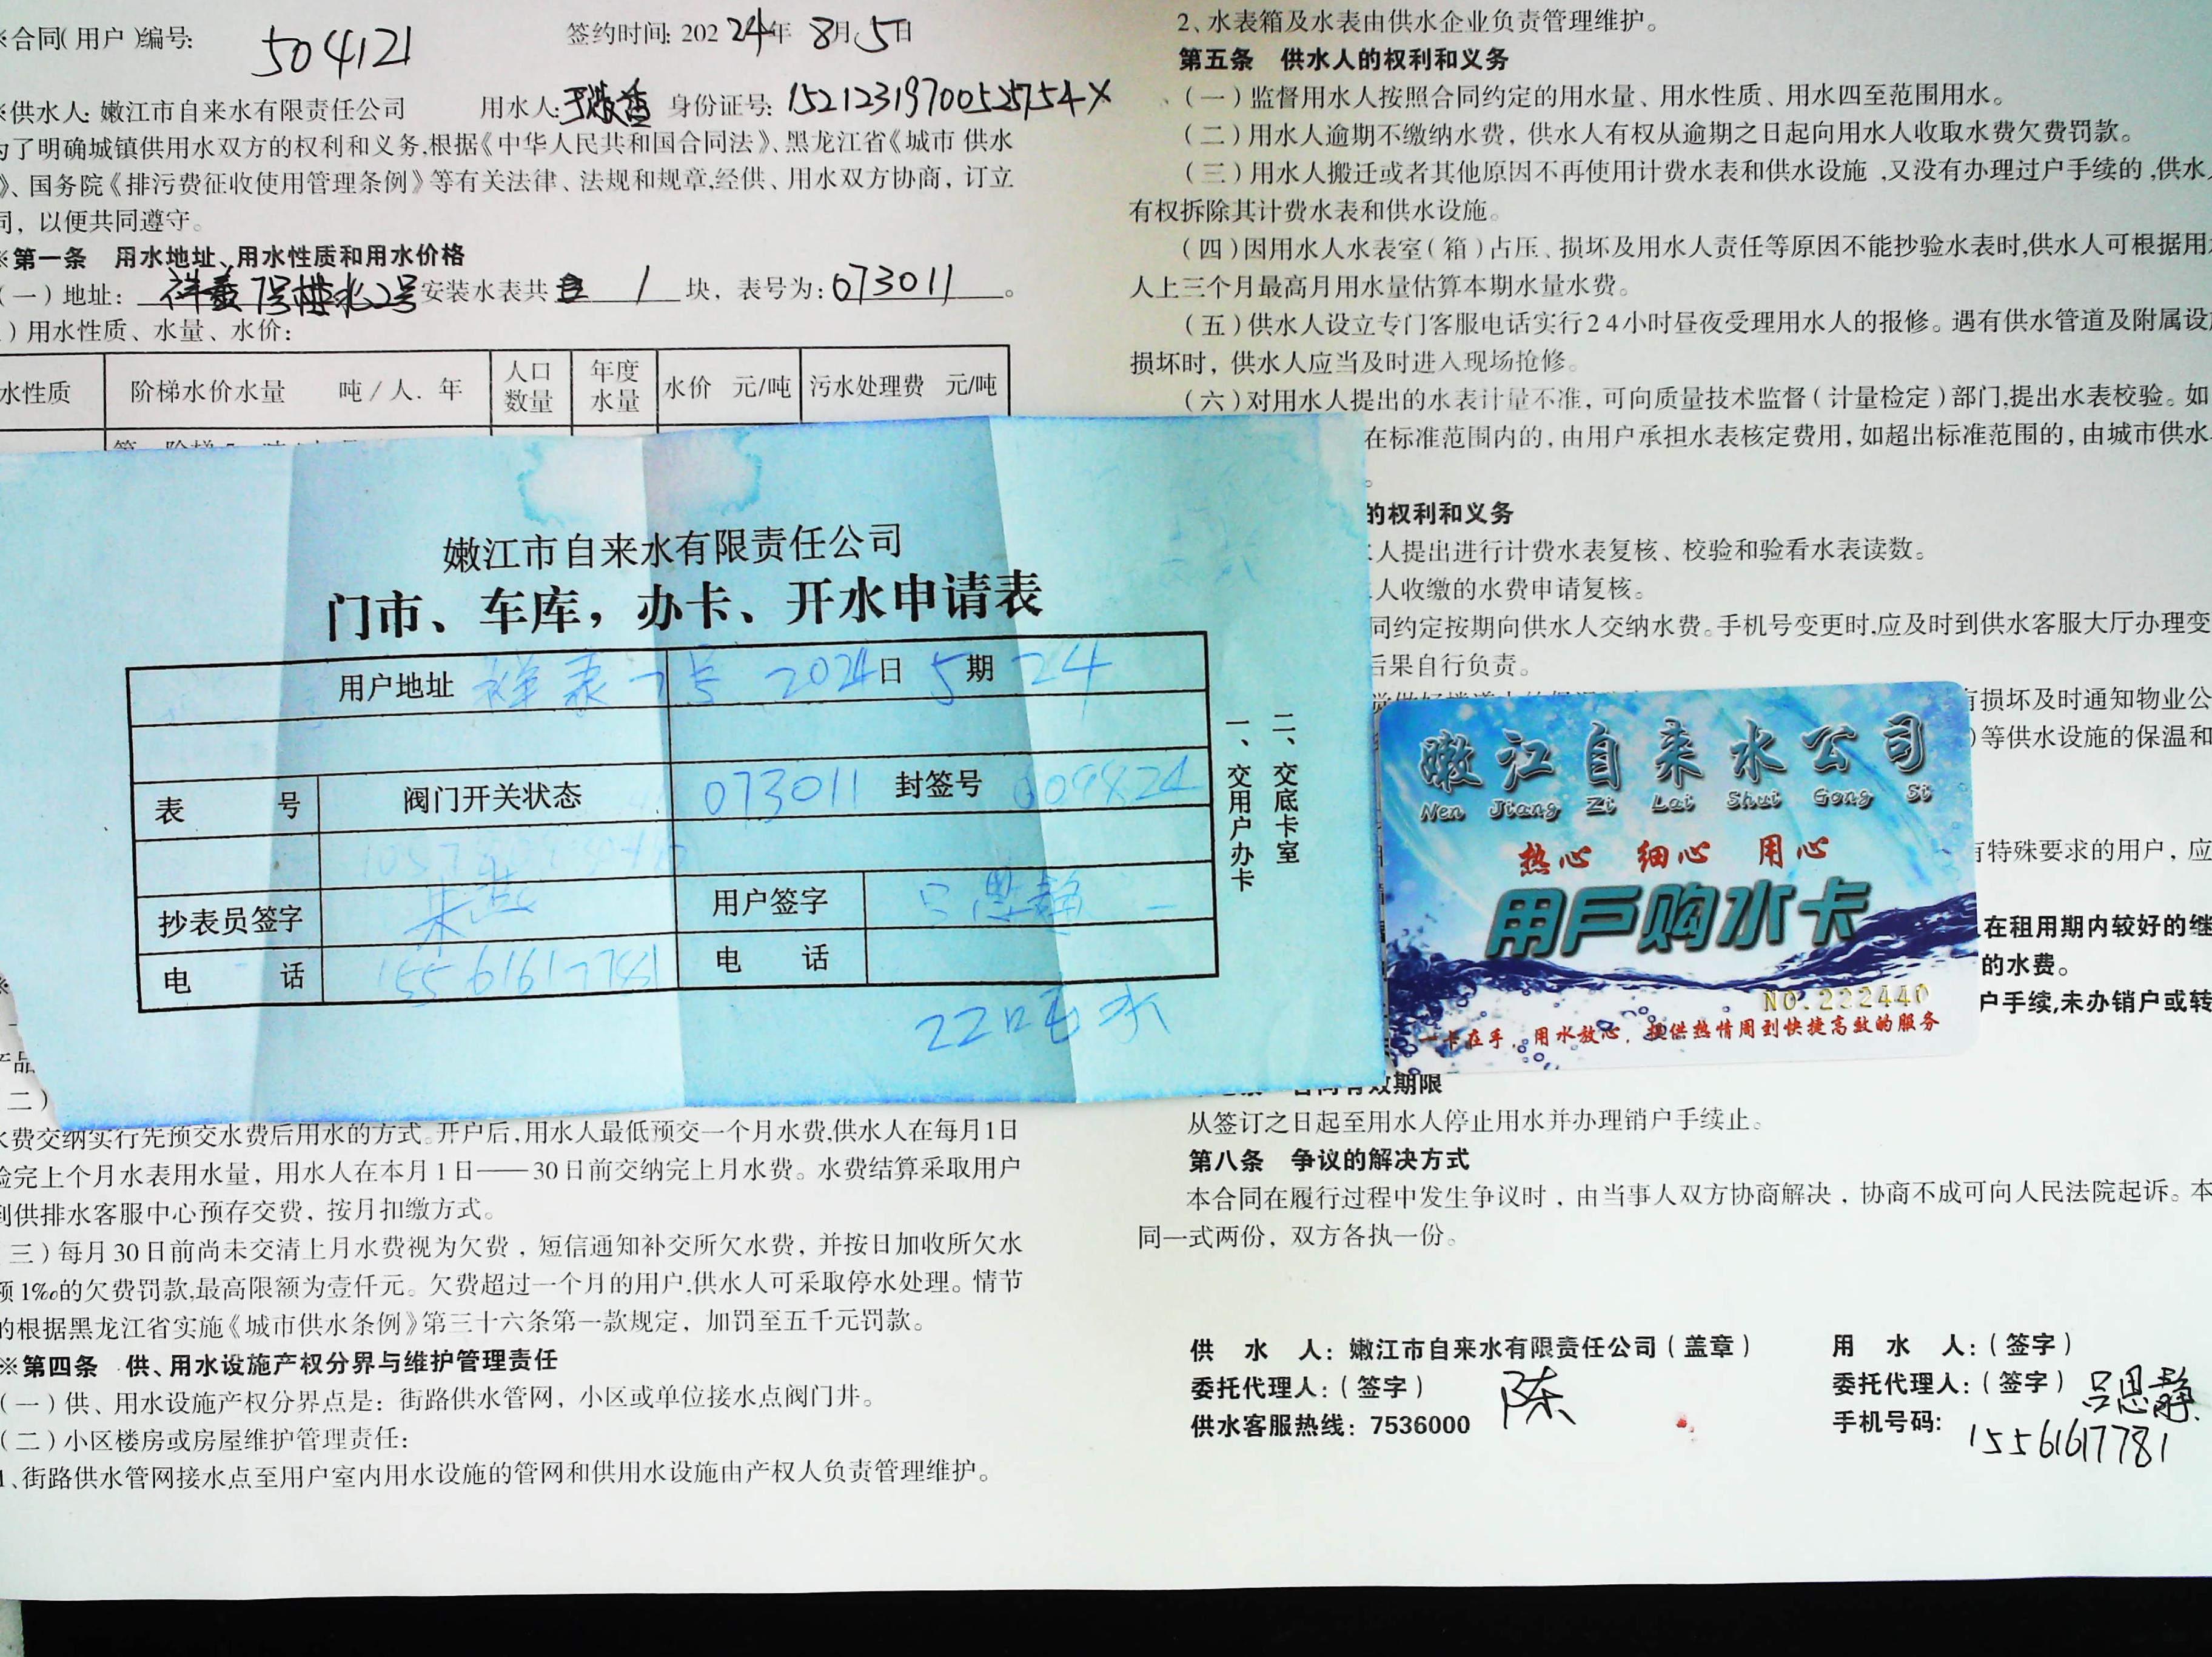 ※合同(用户)编号: 504121 签约时间: 20224年8月5日
※供水人: 嫩江市自来水有限责任公司 用水人: 身份证号: 15212319700525754X
为了明确城镇供用水双方的权利和义务,根据《中华人民共和国合同法》、黑龙江省《城市 供水
》、国务院《排污费征收使用管理条例》等有关法律、法规和规章,经供、用水双方协商，订立
同，以便共同遵守。
※第一条 用水地址、用水性质和用水价格
(一)地址: 安装水表共 1 块，表号为: 073011 。
)用水性质、水量、水价:
水性质 阶梯水价水量 吨/人. 年 人口数量 年度水量 水价 元/吨 污水处理费 元/吨
嫩江市自来水有限责任公司
门市、车库，办卡、开水申请表
用户地址 2024日 5期 24
表 号 阀门开关状态 073011 封签号 009824
抄表员签字 用户签字 吕思静
电 话 15561617781 电 话
22吨水
一、交用户办卡
二、交底卡室
产品
二)
水费交纳实行先预交水费后用水的方式。开户后,用水人最低预交一个月水费,供水人在每月1日
验完上个月水表用水量，用水人在本月1日——30日前交纳完上月水费。水费结算采取用户
到供排水客服中心预存交费，按月扣缴方式。
三)每月30日前尚未交清上月水费视为欠费，短信通知补交所欠水费，并按日加收所欠水
额1‰的欠费罚款,最高限额为壹仟元。欠费超过一个月的用户,供水人可采取停水处理。情节
的根据黑龙江省实施《城市供水条例》第三十六条第一款规定，加罚至五千元罚款。
※第四条 供、用水设施产权分界与维护管理责任
(一)供、用水设施产权分界点是: 街路供水管网，小区或单位接水点阀门井。
(二)小区楼房或房屋维护管理责任:
1、街路供水管网接水点至用户室内用水设施的管网和供用水设施由产权人负责管理维护。
2、水表箱及水表由供水企业负责管理维护。
第五条 供水人的权利和义务
(一)监督用水人按照合同约定的用水量、用水性质、用水四至范围用水。
(二)用水人逾期不缴纳水费，供水人有权从逾期之日起向用水人收取水费欠费罚款。
(三)用水人搬迁或者其他原因不再使用计费水表和供水设施,又没有办理过户手续的,供水人
有权拆除其计费水表和供水设施。
(四)因用水人水表室(箱)占压、损坏及用水人责任等原因不能抄验水表时,供水人可根据用水
人上三个月最高月用水量估算本期水量水费。
(五)供水人设立专门客服电话实行24小时昼夜受理用水人的报修。遇有供水管道及附属设
损坏时，供水人应当及时进入现场抢修。
(六)对用水人提出的水表计量不准，可向质量技术监督(计量检定)部门,提出水表校验。如
在标准范围内的，由用户承担水表核定费用，如超出标准范围的，由城市供水
。
的权利和义务
人提出进行计费水表复核、校验和验看水表读数。
人收缴的水费申请复核。
同约定按期向供水人交纳水费。手机号变更时,应及时到供水客服大厅办理变
后果自行负责。
有损坏及时通知物业公
)等供水设施的保温和
有特殊要求的用户，应
在租用期内较好的继
的水费。
户手续,未办销户或转
嫩江自来水公司
Nen Jiang Zi Lai Shui Gong Si
热心 细心 用心
用户购水卡
NO.222440
一卡在手，用水放心，提供热情周到快捷高效的服务
合同有效期限
从签订之日起至用水人停止用水并办理销户手续止。
第八条 争议的解决方式
本合同在履行过程中发生争议时，由当事人双方协商解决，协商不成可向人民法院起诉。本
同一式两份，双方各执一份。
供 水 人: 嫩江市自来水有限责任公司(盖章) 用 水 人:(签字)
委托代理人:(签字) 陈 委托代理人:(签字) 吕思静
供水客服热线: 7536000 手机号码: 15561617781